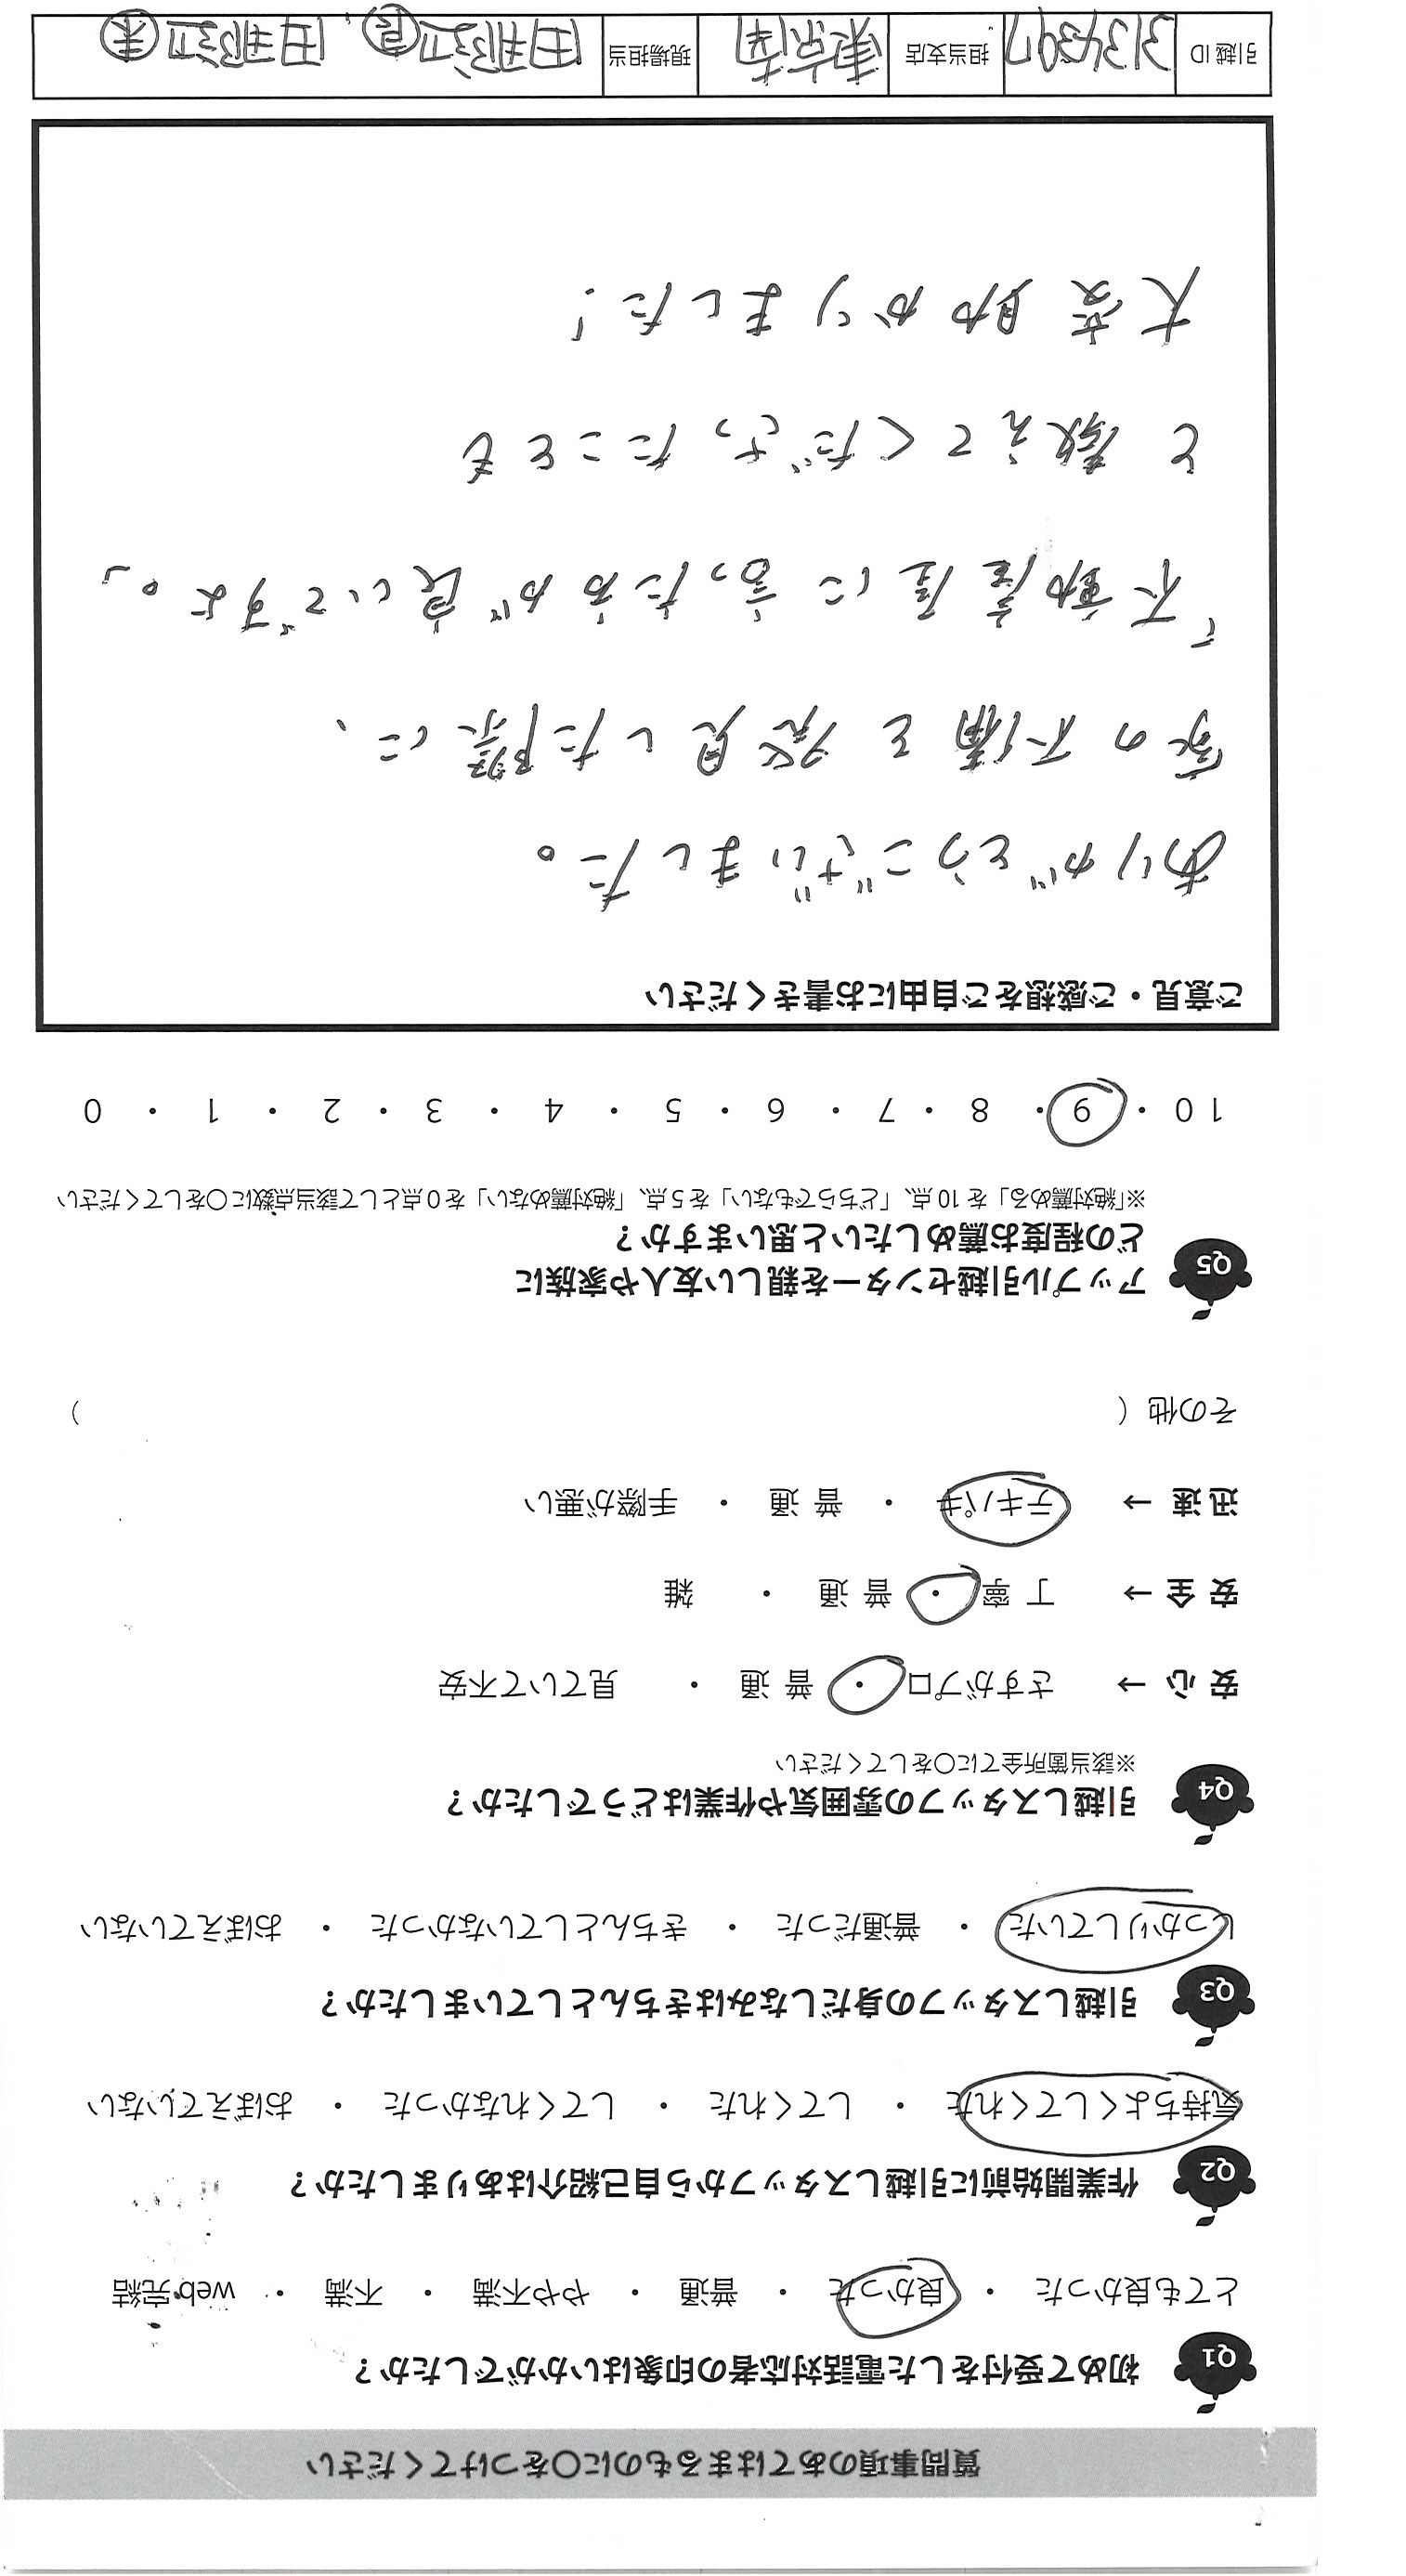 質問事項のあてはまるものに〇をつけてください
Q1 初めて受付をした電話対応者の印象はいかがでしたか？
とても良かった ・ 良かった ・ 普通 ・ やや不満 ・ 不満 ・ web完結
Q2 作業開始前に引越しスタッフから自己紹介はありましたか？
気持ちよくしてくれた ・ してくれた ・ してくれなかった ・ おぼえていない
Q3 引越しスタッフの身だしなみはきちんとしていましたか？
しっかりしていた ・ 普通だった ・ きちんとしていなかった ・ おぼえていない
Q4 引越しスタッフの雰囲気や作業はどうでしたか？
※該当箇所全てに〇をしてください
安心 → さすがプロ ・ 普通 ・ 見ていて不安
安全 → 丁寧 ・ 普通 ・ 雑
迅速 → テキパキ ・ 普通 ・ 手際が悪い
その他（ ）
Q5 アップル引越センターを親しい友人や家族に
どの程度お薦めしたいと思いますか？
※「絶対薦める」を10点、「どちらでもない」を5点、「絶対薦めない」を0点として該当点数に〇をしてください
10 ・ 9 ・ 8 ・ 7 ・ 6 ・ 5 ・ 4 ・ 3 ・ 2 ・ 1 ・ 0
ご意見・ご感想をご自由にお書きください
ありがとうございました。
家の不備を発見した際に、
「不動産屋に言った方が良いですよ。」
と教えてくださったことも
大変助かりました！
引越ID 3134397 担当支店 東京南 現場担当 田那辺